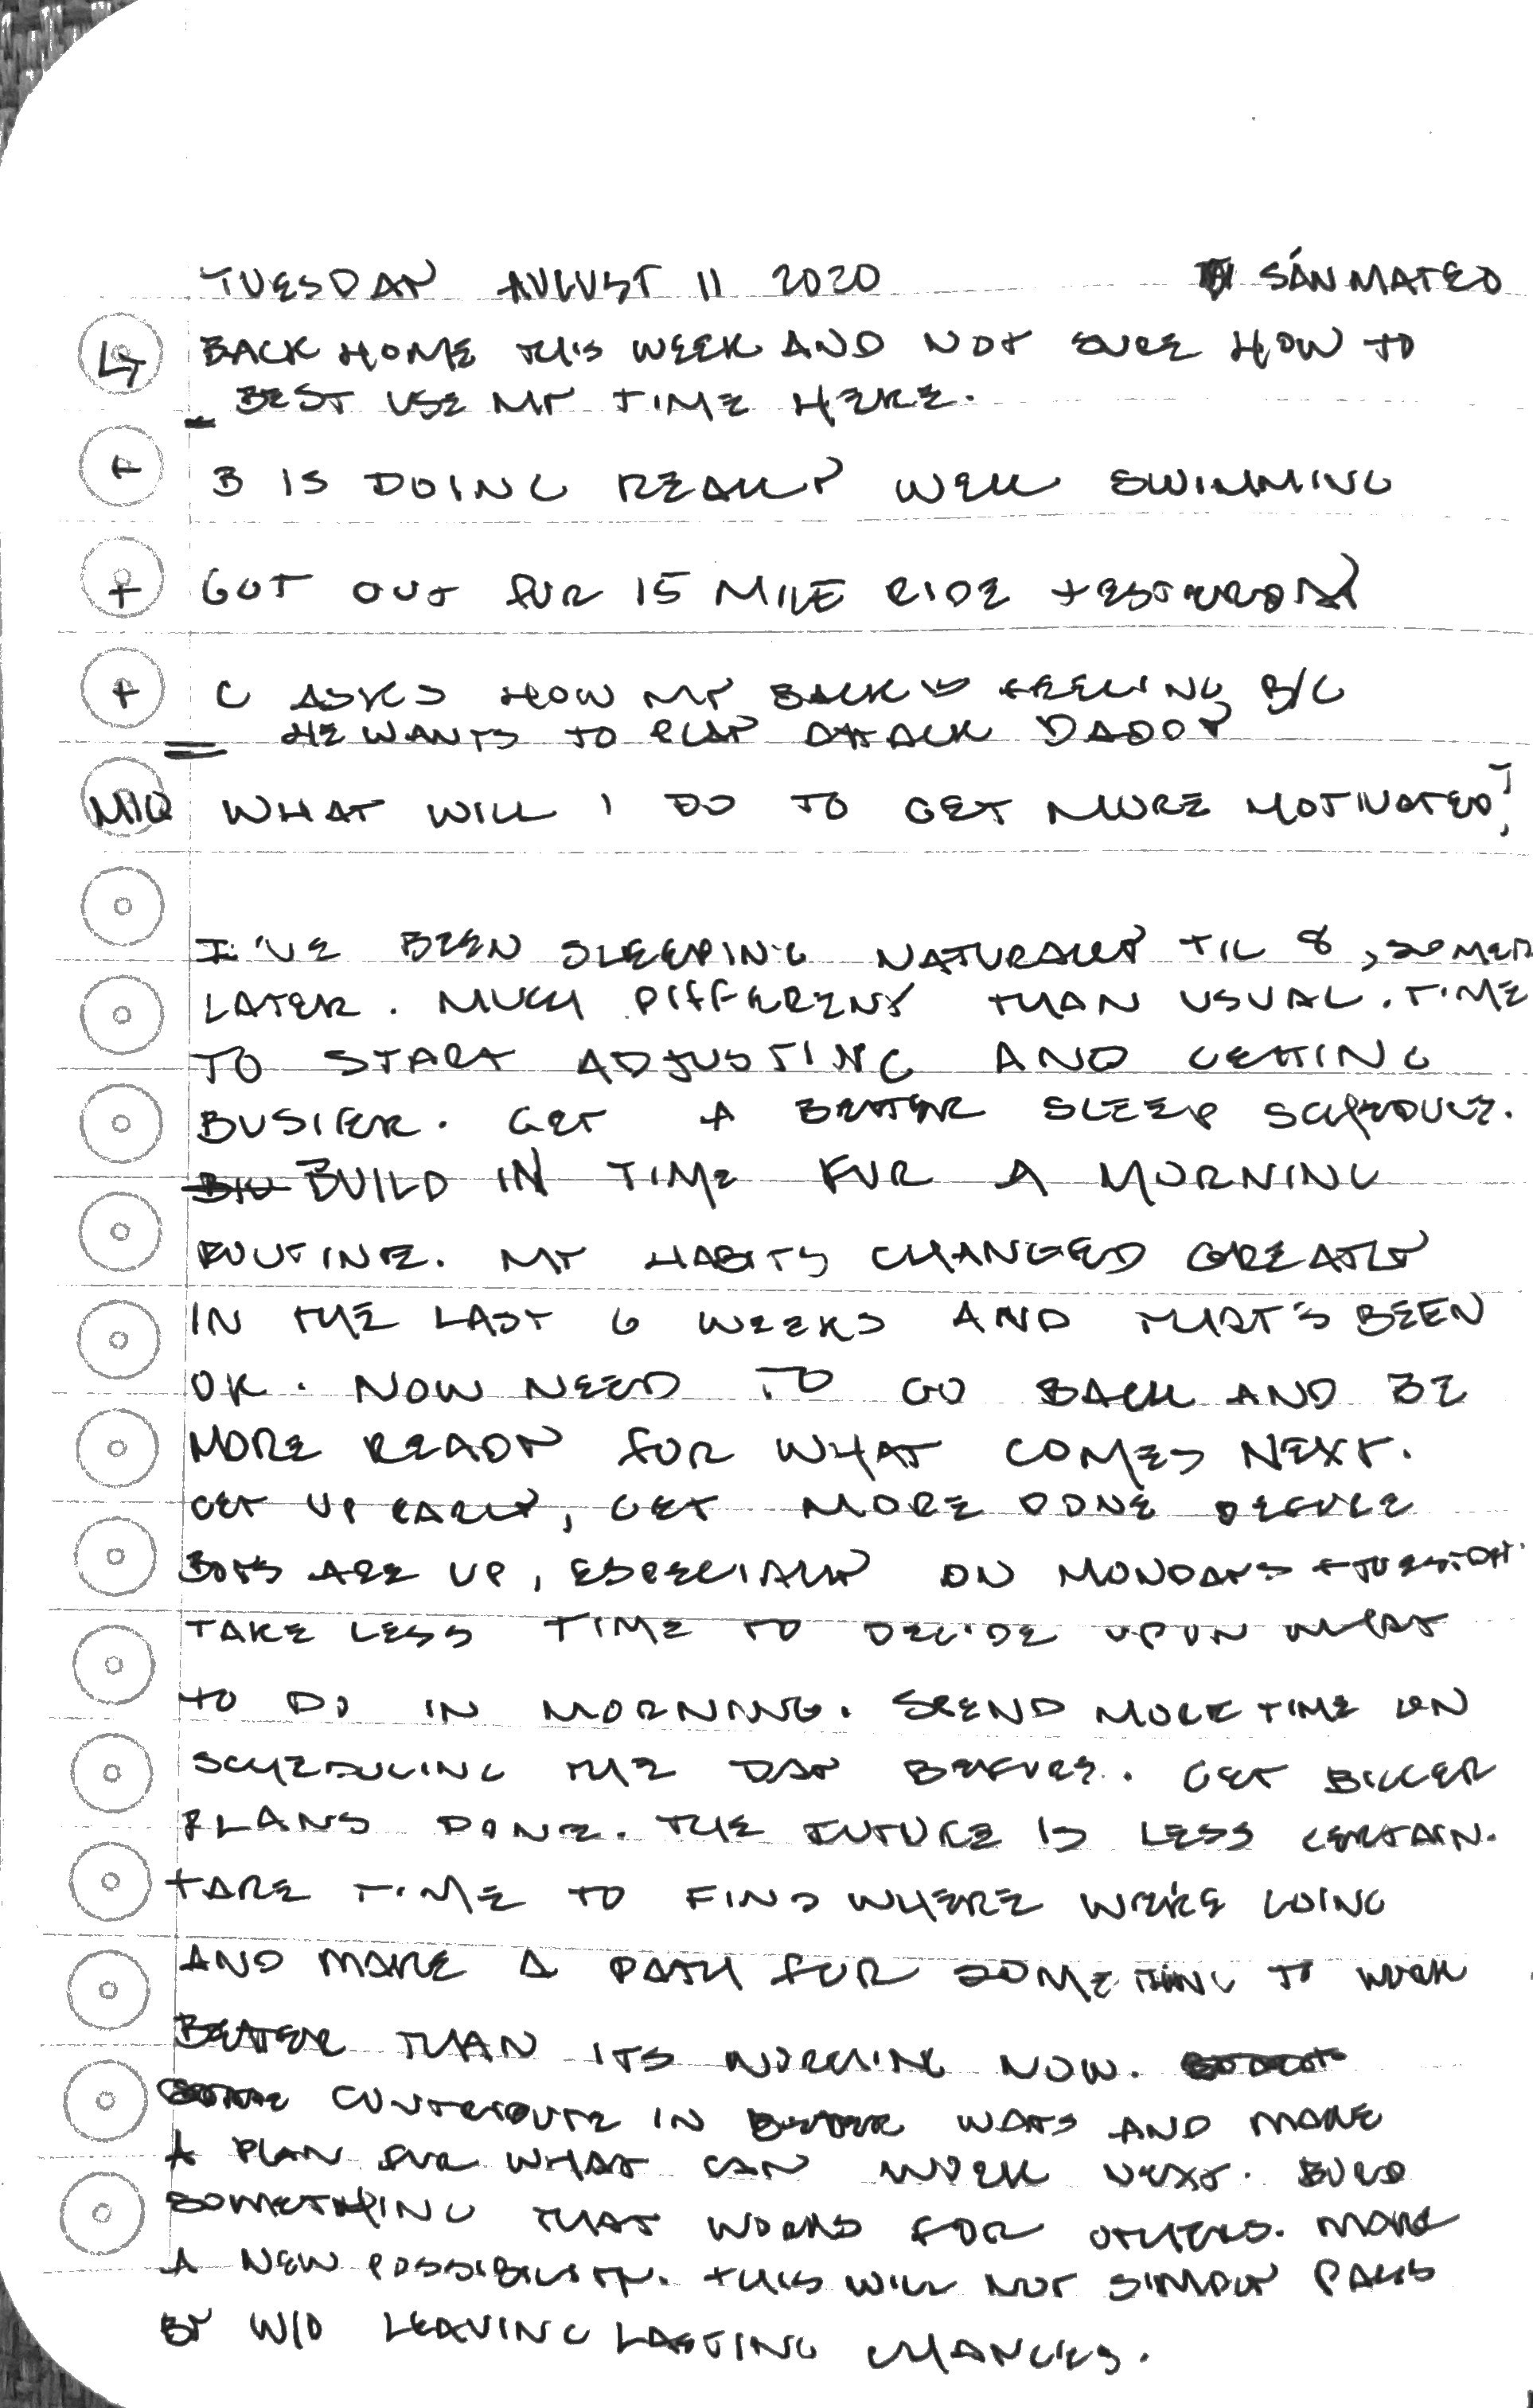 TUESDAY AUGUST 11 2020 SAN MATEO
LT BACK HOME THIS WEEK AND NOT SURE HOW TO
BEST USE MY TIME HERE.
+ B IS DOING REALLY WELL SWIMMING
+ GOT OUT FOR 15 MILE RIDE YESTERDAY
+ C ASKS HOW MY BACK IS FEELING B/C
HE WANTS TO PLAY ATTACK DADDY
MIQ WHAT WILL I DO TO GET MORE MOTIVATED?
I'VE BEEN SLEEPING NATURALLY TIL 8,
LATER. MUCH DIFFERENT THAN USUAL. TIME
TO START ADJUSTING AND GETTING
BUSIER. GET A BETTER SLEEP SCHEDULE.
BUILD IN TIME FOR A MORNING
ROUTINE. MY HABITS CHANGED GREATLY
IN THE LAST 6 WEEKS AND THAT'S BEEN
OK. NOW NEED TO GO BACK AND BE
MORE READY FOR WHAT COMES NEXT.
GET UP EARLY, GET MORE DONE BEFORE
BOYS ARE UP, ESPECIALLY ON MONDAYS + TUESDAY.
TAKE LESS TIME TO DECIDE UPON WHAT
TO DO IN MORNING. SPEND MORE TIME ON
SCHEDULING THE DAY BEFORE. GET BIGGER
PLANS DONE. THE FUTURE IS LESS CERTAIN.
TAKE TIME TO FIND WHERE WE'RE GOING
AND MAKE A PATH FOR SOMETHING TO WORK
BETTER THAN ITS WORKING NOW.
CONTRIBUTE IN BETTER WAYS AND MAKE
A PLAN FOR WHAT CAN WORK NEXT. BUILD
SOMETHING THAT WORKS FOR OTHERS. MAKE
A NEW POSSIBILITY. THIS WILL NOT SIMPLY PASS
BY W/O LEAVING LASTING CHANGES.